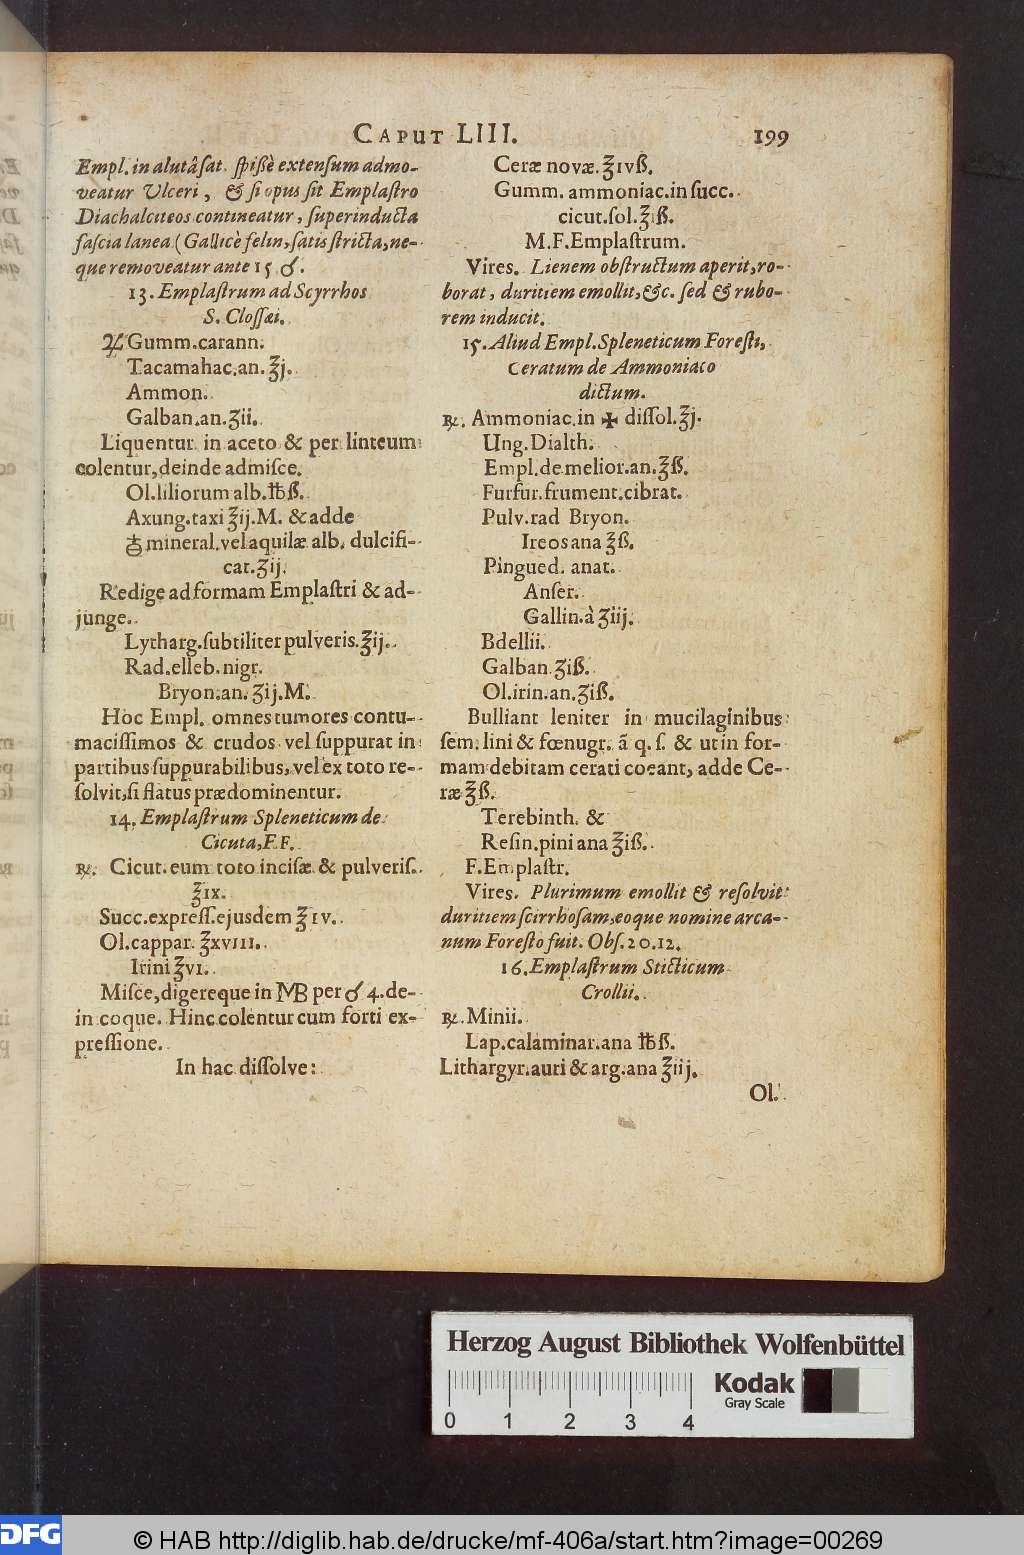 CAPUT LIII. 199
Empl. in alutâ sat. ſpiſſè extenſum admo-
veatur Ulceri, & ſi opus ſit Emplaſtro
Diachalciteos contineatur, ſuperinducta
faſcia lanea (Gallicè felin, ſatis ſtricta, ne-
que removeatur ante 15 ☌.
13. Emplaſtrum ad Scyrrhos
S. Cloſſæi.
♃ Gumm. carann.
Tacamahac. an. ℥j.
Ammon.
Galban. an. ʒii.
Liquentur in aceto & per linteum
colentur, deinde admiſce.
Ol. liliorum alb. ℔ß.
Axung. taxi ℥ij. M. & adde
mineral. vel aquilæ alb. dulcifi-
cat. ʒij.
Redige ad formam Emplaſtri & ad-
junge.
Lytharg. ſubtiliter pulveris. ℥ij.
Rad. elleb. nigr.
Bryon. an. ʒij. M.
Hoc Empl. omnes tumores contu-
maciſſimos & crudos vel ſuppurat in
partibus ſuppurabilibus, vel ex toto re-
ſolvit, ſi flatus prædominentur.
14. Emplaſtrum Spleneticum de
Cicuta, F. F.
℞. Cicut. eum toto inciſæ & pulveriſ.
℥ix.
Succ. expreſſ. ejusdem ℥iv.
Ol. cappar. ℥xviii.
Irini ℥vi.
Miſce, digereque in MB per ☌ 4. de-
in coque. Hinc colentur cum forti ex-
preſſione.
In hac diſſolve:
Ceræ novæ. ℥ivß.
Gumm. ammoniac. in ſucc.
cicut. ſol. ℥iß.
M. F. Emplaſtrum.
Vires. Lienem obſtructum aperit, ro-
borat, duritiem emollit, &c. ſed & rubo-
rem inducit.
15. Aliud Empl. Spleneticum Foreſti,
Ceratum de Ammoniaco
dictum.
℞. Ammoniac. in ✠ diſſol. ℥j.
Ung. Dialth.
Empl. de melior. an. ℥ß.
Furfur. frument. cibrat.
Pulv. rad Bryon.
Ireos ana ℥ß.
Pingued. anat.
Anſer.
Gallin. à ʒiij.
Bdellii.
Galban. ʒiß.
Ol. irin. an. ʒiß.
Bulliant leniter in mucilaginibus
ſem. lini & fœnugr. ã q. ſ. & ut in for-
mam debitam cerati coeant, adde Ce-
ræ ℥ß.
Terebinth. &
Reſin. pini ana ℥iß.
F. Emplaſtr.
Vires. Plurimum emollit & reſolvit
duritiem ſcirrhoſam, eoque nomine arca-
num Foreſto fuit. Obſ. 20. 12.
16. Emplaſtrum Sticticum
Crollii.
℞. Minii.
Lap. calaminar. ana ℔ß.
Lithargyr. auri & arg. ana ℥iij.
Ol.
Herzog August Bibliothek Wolfenbüttel
Kodak
Gray Scale
0 1 2 3 4
DFG
© HAB http://diglib.hab.de/drucke/mf-406a/start.htm?image=00269